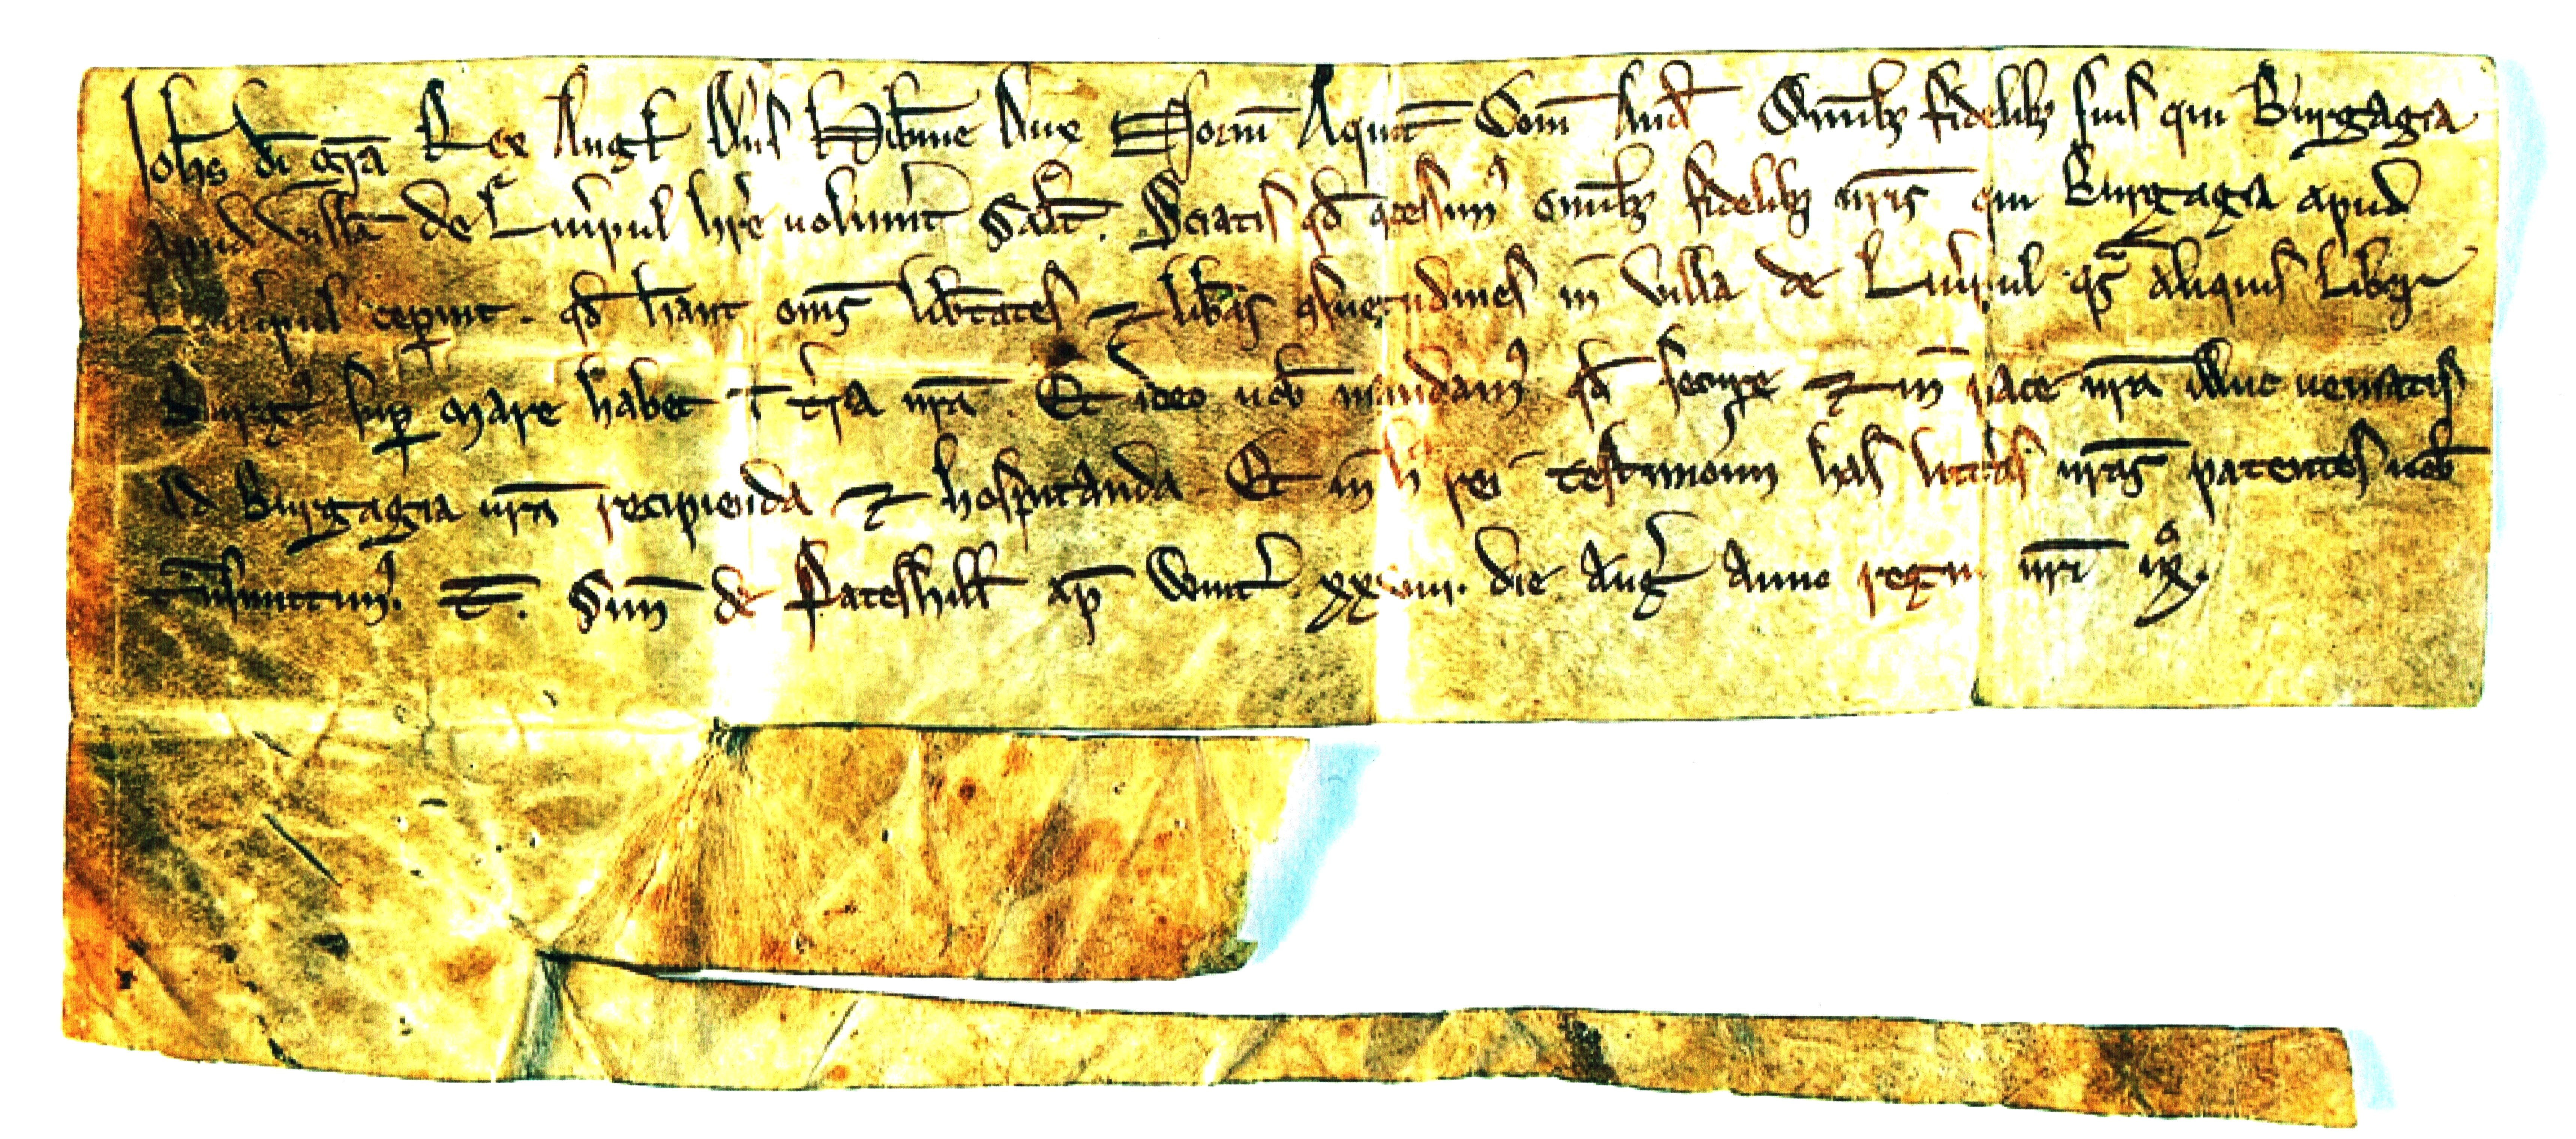 Ioh̄s d̄i gr̄a Rex Angł Dn̄s Hib̄nie Dux Norm̄ Aquit̄ Com̄ And̄ Omnib; fidelib; suis qui Burgagia
apud villā de Liu̾pul hr̄e voluerint Salt̄. Sciatis qd̄ ꝯcessimꝰ omīb; fidelib; nr̄is qui Burgagia apud
Liu̾pul ceper̄int qd̄ hēant om̄s lib̾tates ⁊ lib̾as ꝯsuetudines in villa de Liu̾pul qͣs aliquis liber
Burgꝰ suꝑ mare habet ī t̾ra nr̄a. Et ideo vob̄ mandamꝰ qd̄ secure ⁊ in pace nr̄a illuc veniatis
ad Burgagia nr̄a recipienda ⁊ hospitanda. Et in hꝰ rei testimoniū has litt̾as nr̄as patentes vob̄
tᷓnsmittimꝰ. T̄. Sim̄ de Pateshill̄ ap̄ Wint̾ xxviii. die Aug̾ Anno regni nr̄i ixº.